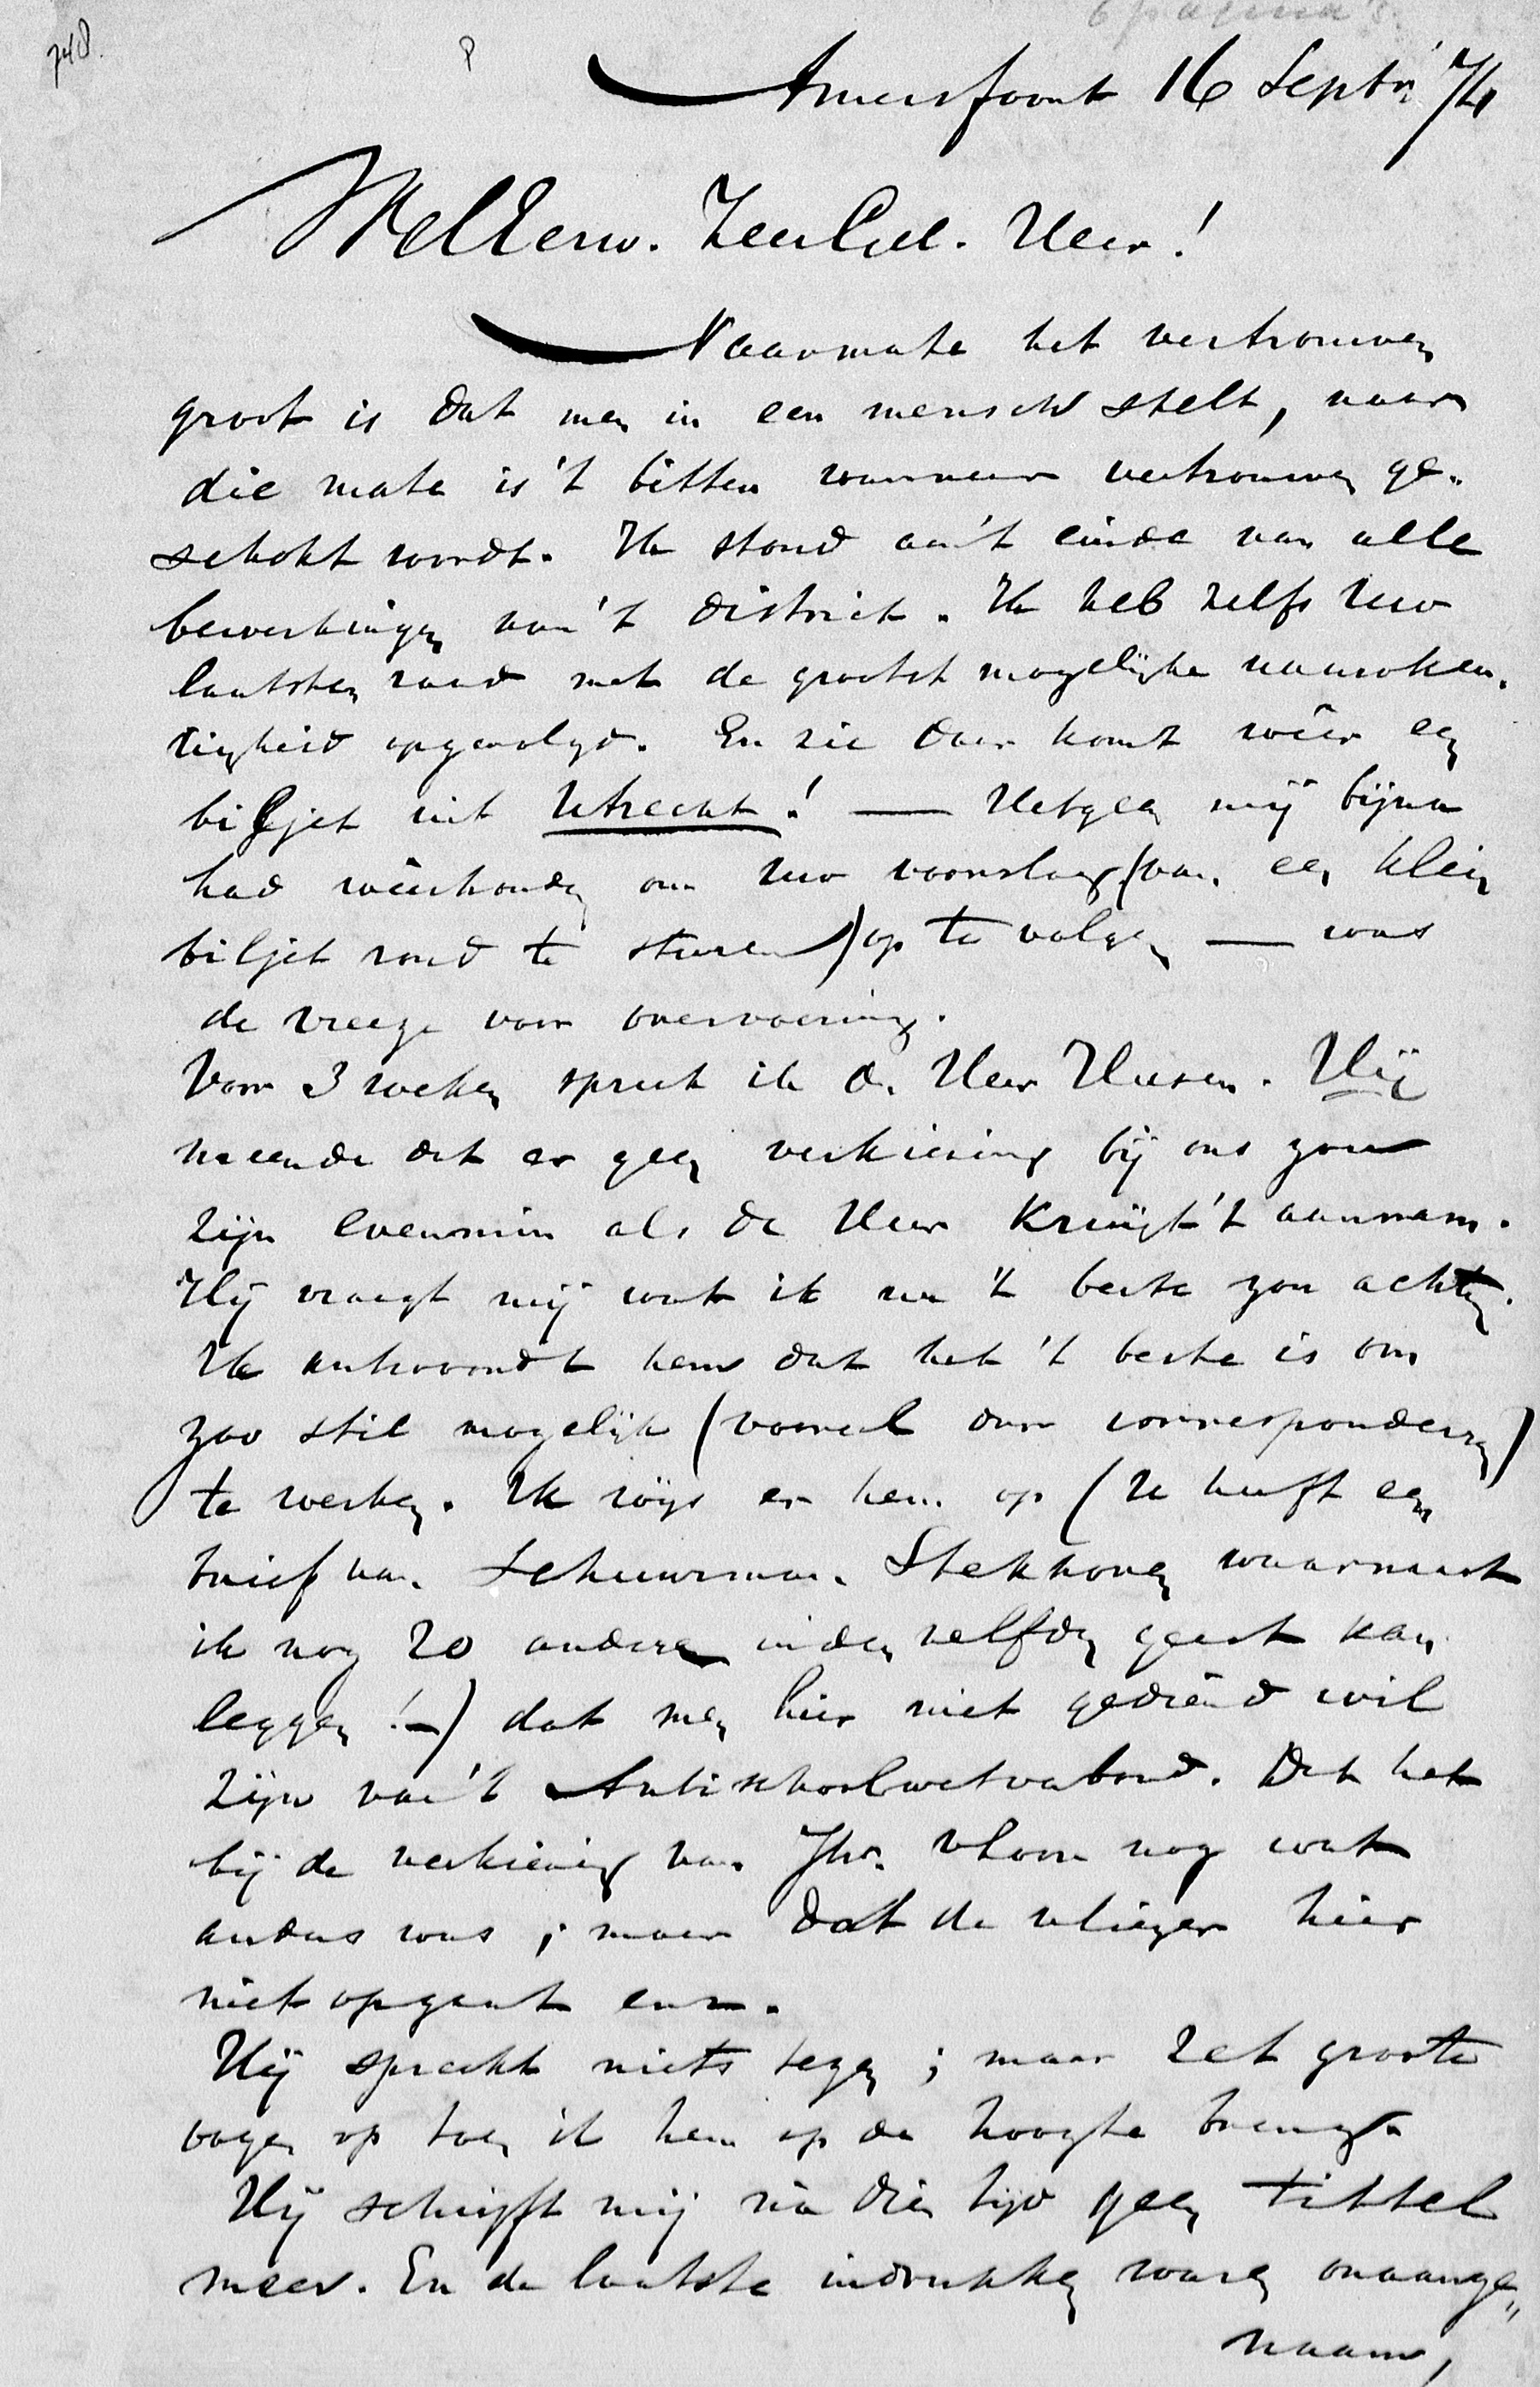 6 pagina's.
748.
Amersfoort 16 Septr '74
WelEerw. ZeerGel. Heer!
Naarmate het vertrouwen
groot is dat men in een mensch stelt, naar
die mate is 't bitter wanneer vertrouwen ge-
schokt wordt. Ik stond aan 't einde van alle
bewerkingen van 't district. Ik heb zelfs Uw
laatsten raad met de grootst mogelijke nauwkeu-
righeid opgevolgd. En zie daar komt weêr een
biljet uit Utrecht! — Hetgeen mij bijna
had weêrhouden om Uw voorslag (van een klein
biljet rond te sturen) op te volgen — was
de vreeze voor overvoering.
Voor 3 weken spreek ik de Heer Hiesen. Hij
meende dat er geen verkiezing bij ons zou
zijn evenmin als de Heer Kruijt 't aannam.
Hij vraagt mij wat ik nu 't beste zou achten.
Ik antwoordt hem dat het 't beste is om
zoo stil mogelijk (vooral door correspondenten)
te werken. Ik wijs er hem op (U heeft een
brief van Schuurman Stekhoven waarnaast
ik nog 20 andere in den zelfden geest kan
leggen!—) dat men hier niet gediend wil
zijn van 't Antischoolwetverbond. Dat het
bij de verkiezing van Jhr. v Loon nog wat
anders was; maar dat de vlieger hier
niet opgaat enz.
Hij spreekt niets tegen; maar zet groote
oogen op toen ik hem op de hoogte breng.
Hij schrijft mij na dien tijd geen tittel
meer. En de laatste indrukken waren onaange„
naam,